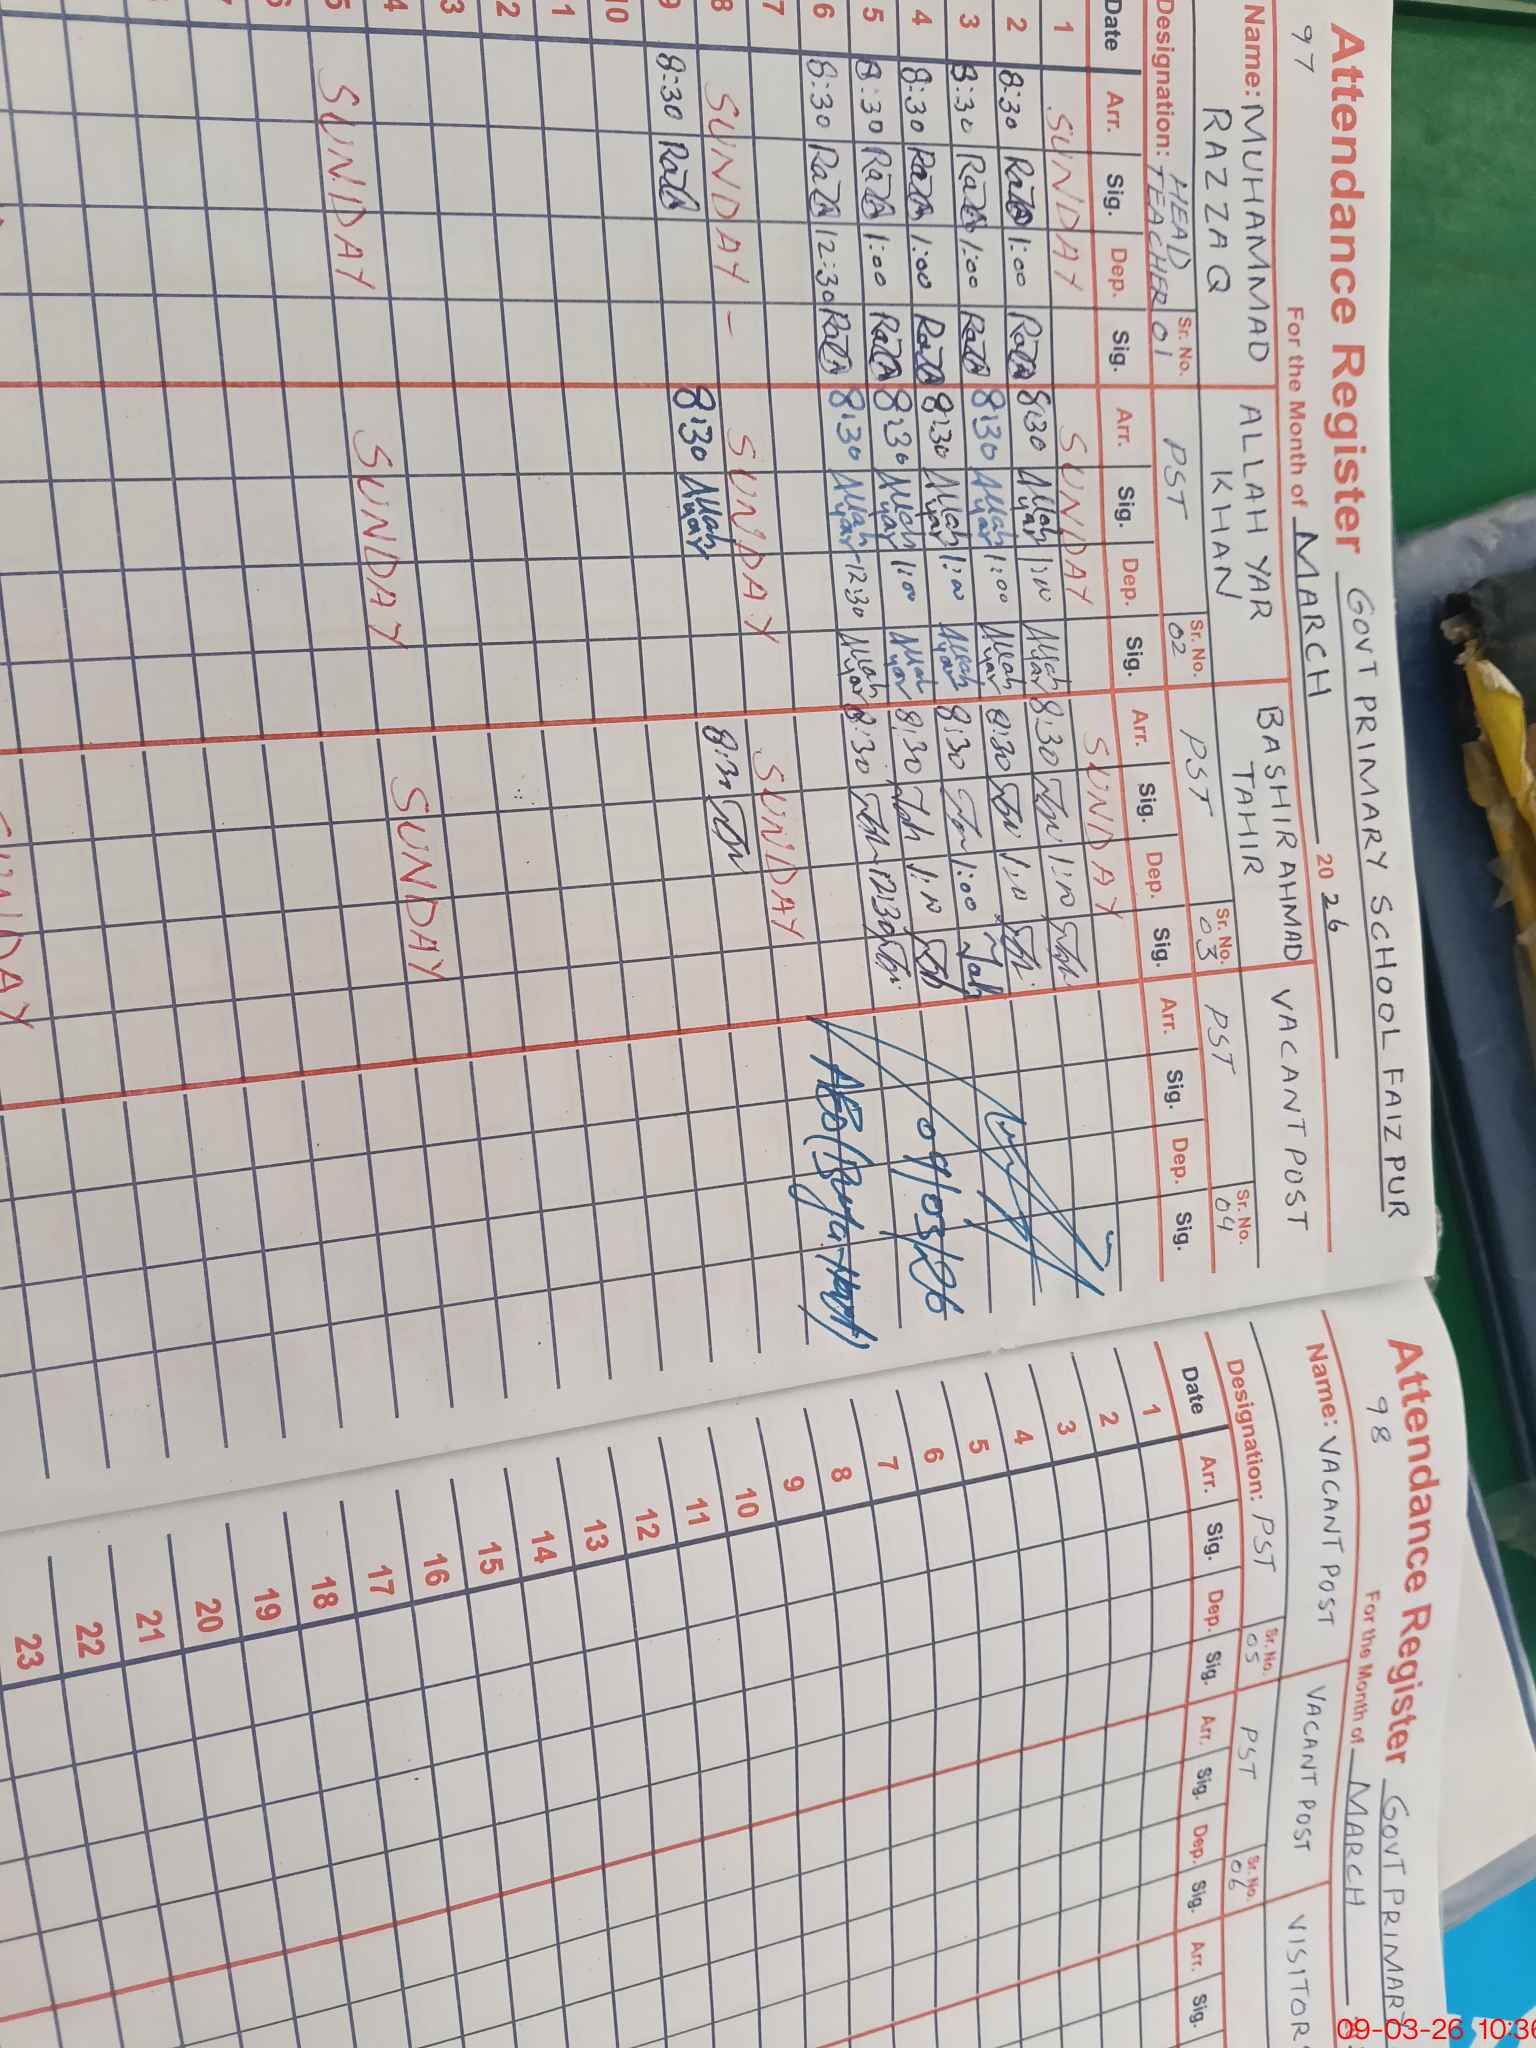 97
Attendance Register GOVT PRIMARY SCHOOL FAIZ PUR
For the Month of MARCH 2026
Name: MUHAMMAD RAZZAQ ALLAH YAR KHAN BASHIR AHMAD TAHIR VACANT POST
Designation: HEAD TEACHER Sr. No. 01 PST Sr. No. 02 PST Sr. No. 03 PST Sr. No. 04
Date Arr. Sig. Dep. Sig. Arr. Sig. Dep. Sig. Arr. Sig. Dep. Sig. Arr. Sig. Dep. Sig.
1 SUNDAY SUNDAY SUNDAY
2 8:30 1:00 8:30 Allah yar 1:00 Allah yar 8:30 1:00
3 8:30 1:00 8:30 Allah yar 1:00 Allah yar 8:30 1:00
4 8:30 1:00 8:30 Allah yar 1:00 Allah yar 8:30 1:00
5 8:30 1:00 8:30 Allah yar 1:00 Allah yar 8:30 1:00
6 8:30 12:30 8:30 Allah yar 12:30 Allah yar 8:30 12:30
7
8 SUNDAY - SUNDAY SUNDAY
9 8:30 8:30 Allah yar 8:30
10
1
2
3
4
5 SUNDAY SUNDAY SUNDAY
6
09/03/26
98
Attendance Register GOVT PRIMARY
For the Month of MARCH
Name: VACANT POST VACANT POST VISITOR
Designation: PST Sr. No. 05 PST Sr. No. 06
Date Arr. Sig. Dep. Sig. Arr. Sig. Dep. Sig. Arr. Sig.
1
2
3
4
5
6
7
8
9
10
11
12
13
14
15
16
17
18
19
20
21
22
23
09-03-26 10:36